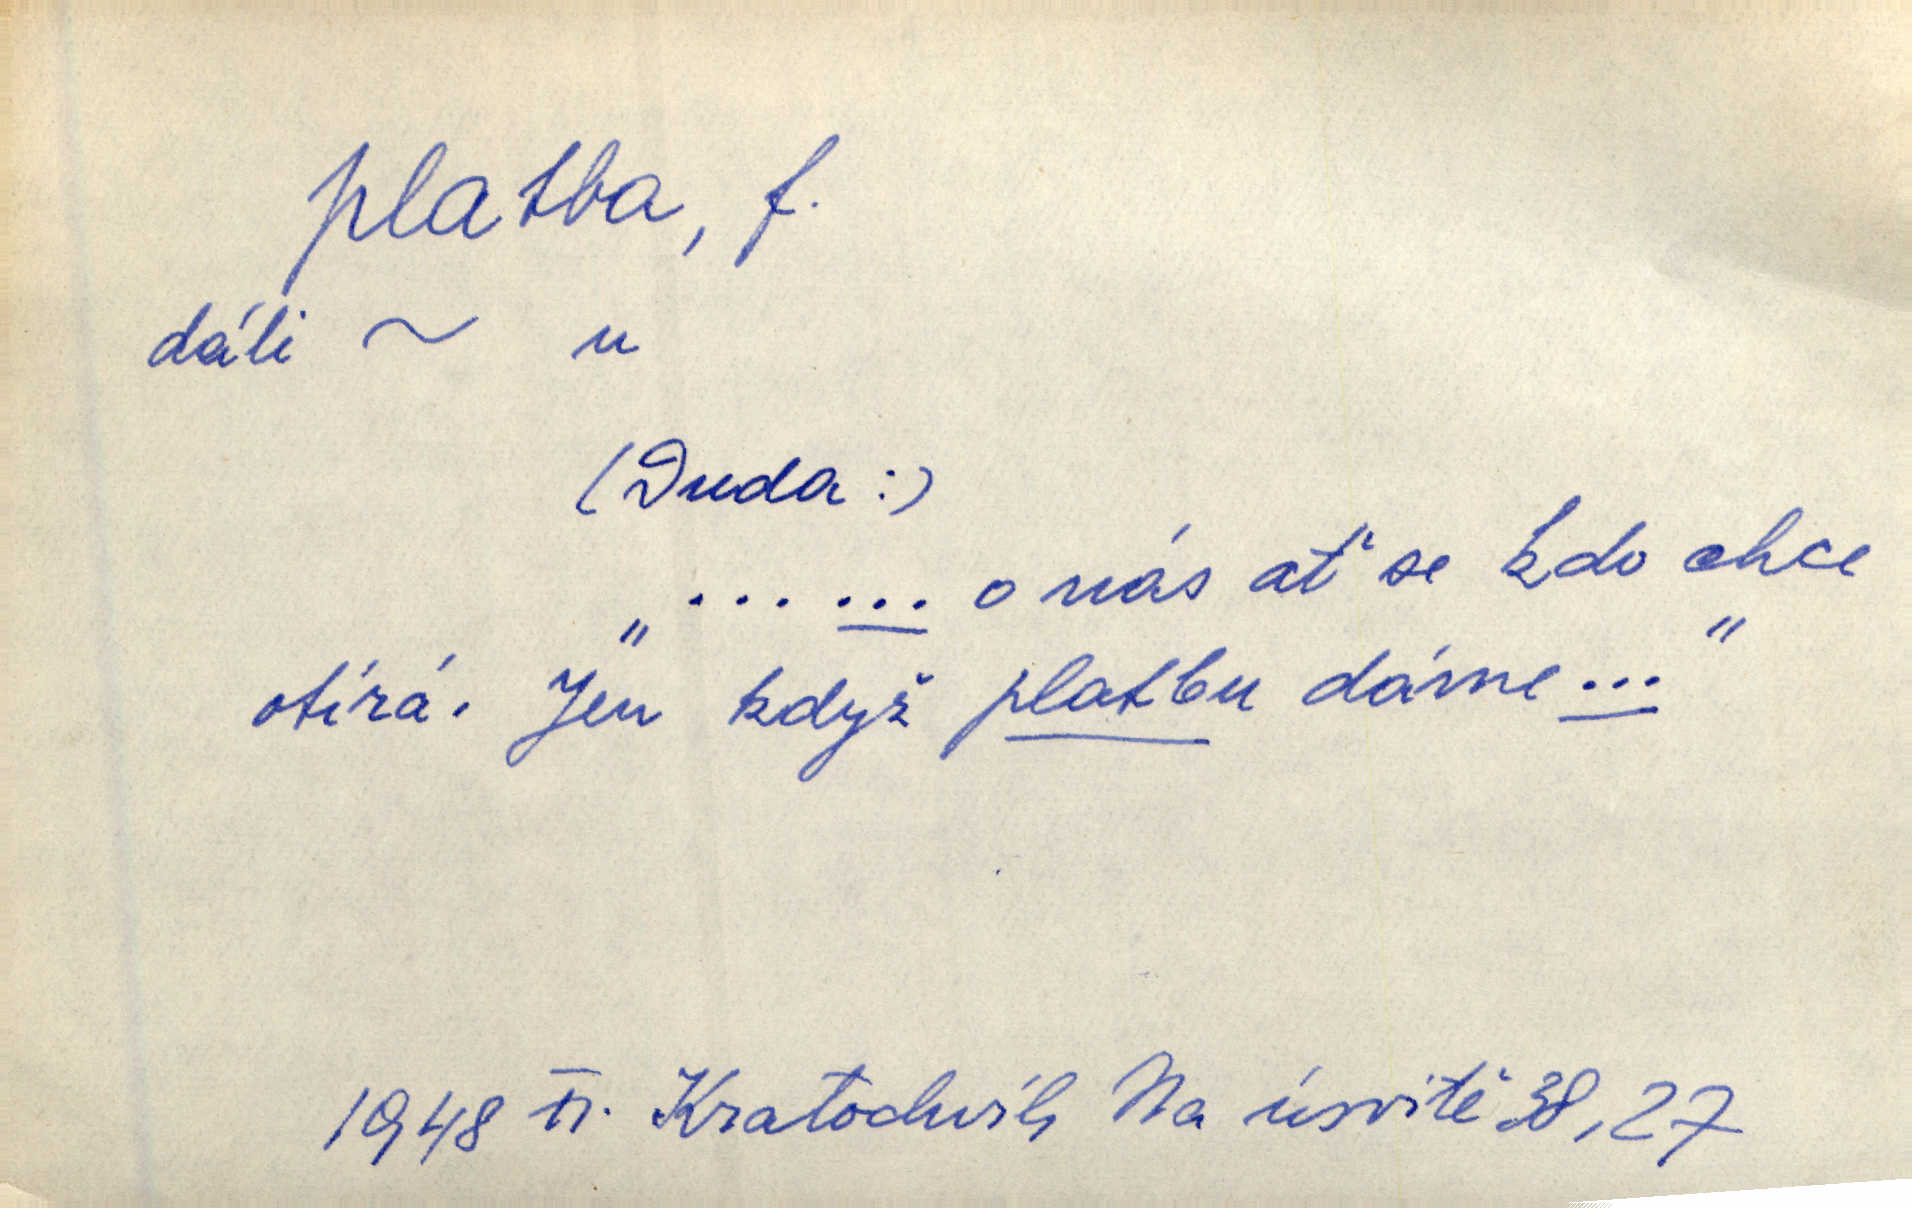 platba, f.
dáti ~ u
(Duda :)
„ ... ... o nás ať se kdo chce
otírá. Jen když platbu dáme ... "
1948 Kratochvíl, Na úsvitě 38, 27